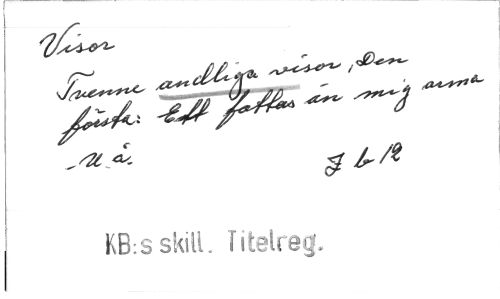 Visor
Tvenne andliga visor, Den
första: Ett fattas än mig arma
- U. å.
J b 12
KB:s skill. Titelreg.